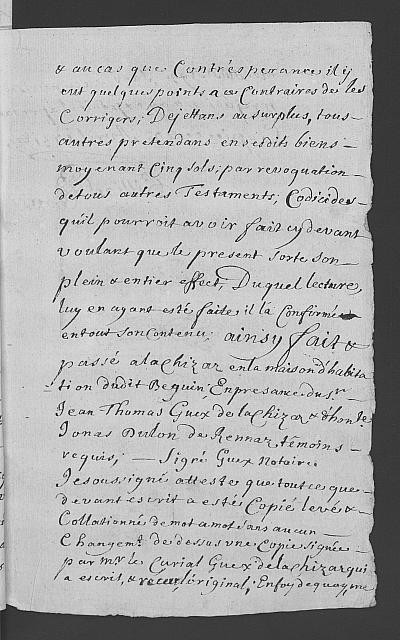 & au cas que Contre ésperance il ÿ
eut quelques points a ce Contraires de les
Corriger; Dejettans au surplus, tous
autres pretendans en sesdits biens
moyenant Cinq sols; par revoquation
de tous autres Testaments; Codiciles
qu'il pourroit avoir fait cy devant
voulant que le present sorte son
plein & entier effect; Duquel lecture,
luy en ayant esté faite il la Confirmé
en tout son contenu; ainsy fait &
passé a la Chizaz en la maison d'habita
tion dudit Beguin, En presance du Sr
Jean Thomas Guex de la Chizaz & d'honle
Jonas Dulon de Rennaz témoins
requis; Signé Guex Notaire
Je soussigné atteste que tout ce que
devant escrit a estés Copié levé &
Collationné de mot a mot sans aucun
Changemt de dessus une Copie signée
par Mr le Curial Guex de la Chizaz qui
a escrit, & receu l'original; En foy de quoy, me